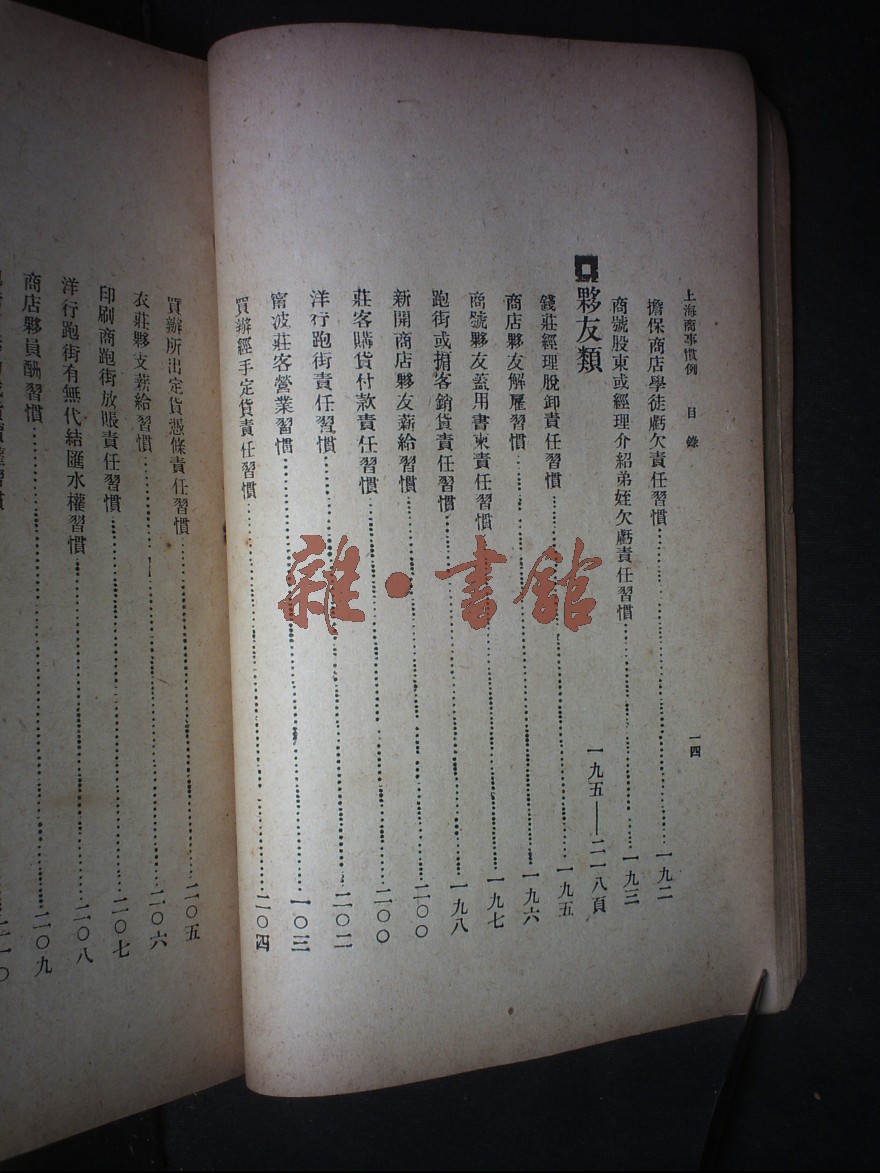 上海商事慣例 目錄 一四
擔保商店學徒虧欠責任習慣…一九二
商號股東或經理介紹弟姪欠虧責任習慣…一九三
夥友類 一九五——二一八頁
錢莊經理脫卸責任習慣…一九五
商店夥友解雇習慣…一九六
商號夥友蓋用書柬責任習慣…一九七
跑街或捎客銷貨責任習慣…一九八
新開商店夥友薪給習慣…二〇〇
莊客購貨付款責任習慣…二〇〇
洋行跑街責任習慣…二〇二
甯波莊客營業習慣…一〇三
買辦經手定貨責任習慣…二〇四
買辦所出定貨憑條責任習慣…二〇五
衣莊夥支薪給習慣…二〇六
印刷商跑街放賬責任習慣…二〇七
洋行跑街有無代結匯水權習慣…二〇八
商店夥員酬習慣…二〇九
習慣…二一〇
雜·書館